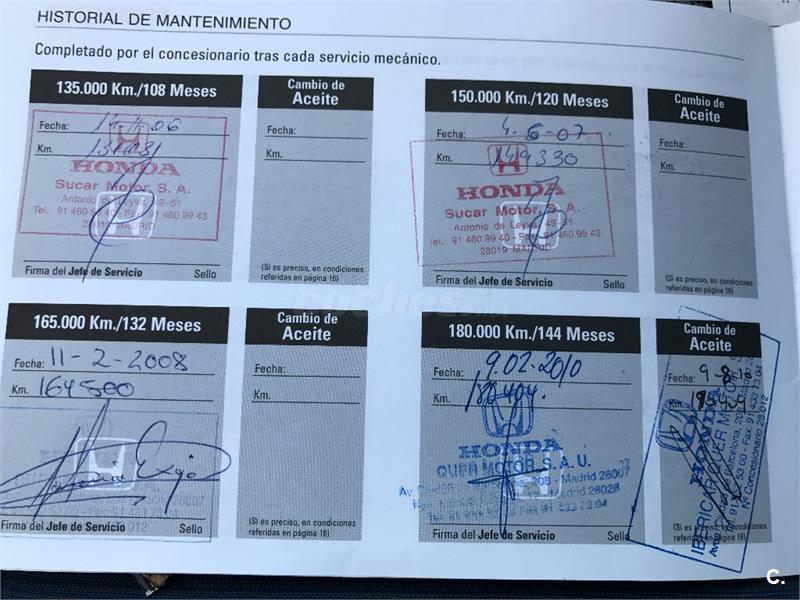 HISTORIAL DE MANTENIMIENTO
Completado por el concesionario tras cada servicio mecánico.
135.000 Km./108 Meses
Fecha:
Km.
HONDA
Sucar Motor, S. A.
Antonio de Leyva, 49-51
Tel.: 91 460 99 40 - Fax 91 460 99 43
28019 MADRID
Firma del Jefe de Servicio Sello
Cambio de
Aceite
Fecha:
Km.
(Si es preciso, en condiciones
referidas en página 16)
150.000 Km./120 Meses
Fecha: 4-6-07
Km. 149330
HONDA
Sucar Motor, S. A.
Antonio de Leyva, 49-51
Tel.: 91 460 99 40 - Fax: 91 460 99 43
28019 MADRID
Firma del Jefe de Servicio Sello
Cambio de
Aceite
Fecha:
Km.
(Si es preciso, en condiciones
referidas en página 16)
165.000 Km./132 Meses
Fecha: 11-2-2008
Km. 164500
Firma del Jefe de Servicio Sello
Cambio de
Aceite
Fecha:
Km.
(Si es preciso, en condiciones
referidas en página 16)
180.000 Km./144 Meses
Fecha: 9.02.2010
Km.
HONDA
QUER MOTOR, S.A.U.
Madrid 28007
Madrid 28028
Firma del Jefe de Servicio Sello
Cambio de
Aceite
Fecha: 9-8-10
Km.
HONDA
IBERICAR QUER MOTOR
Nº Concesionario 28.012
(Si es preciso, en condiciones
referidas en página 16)
coches.net
C.